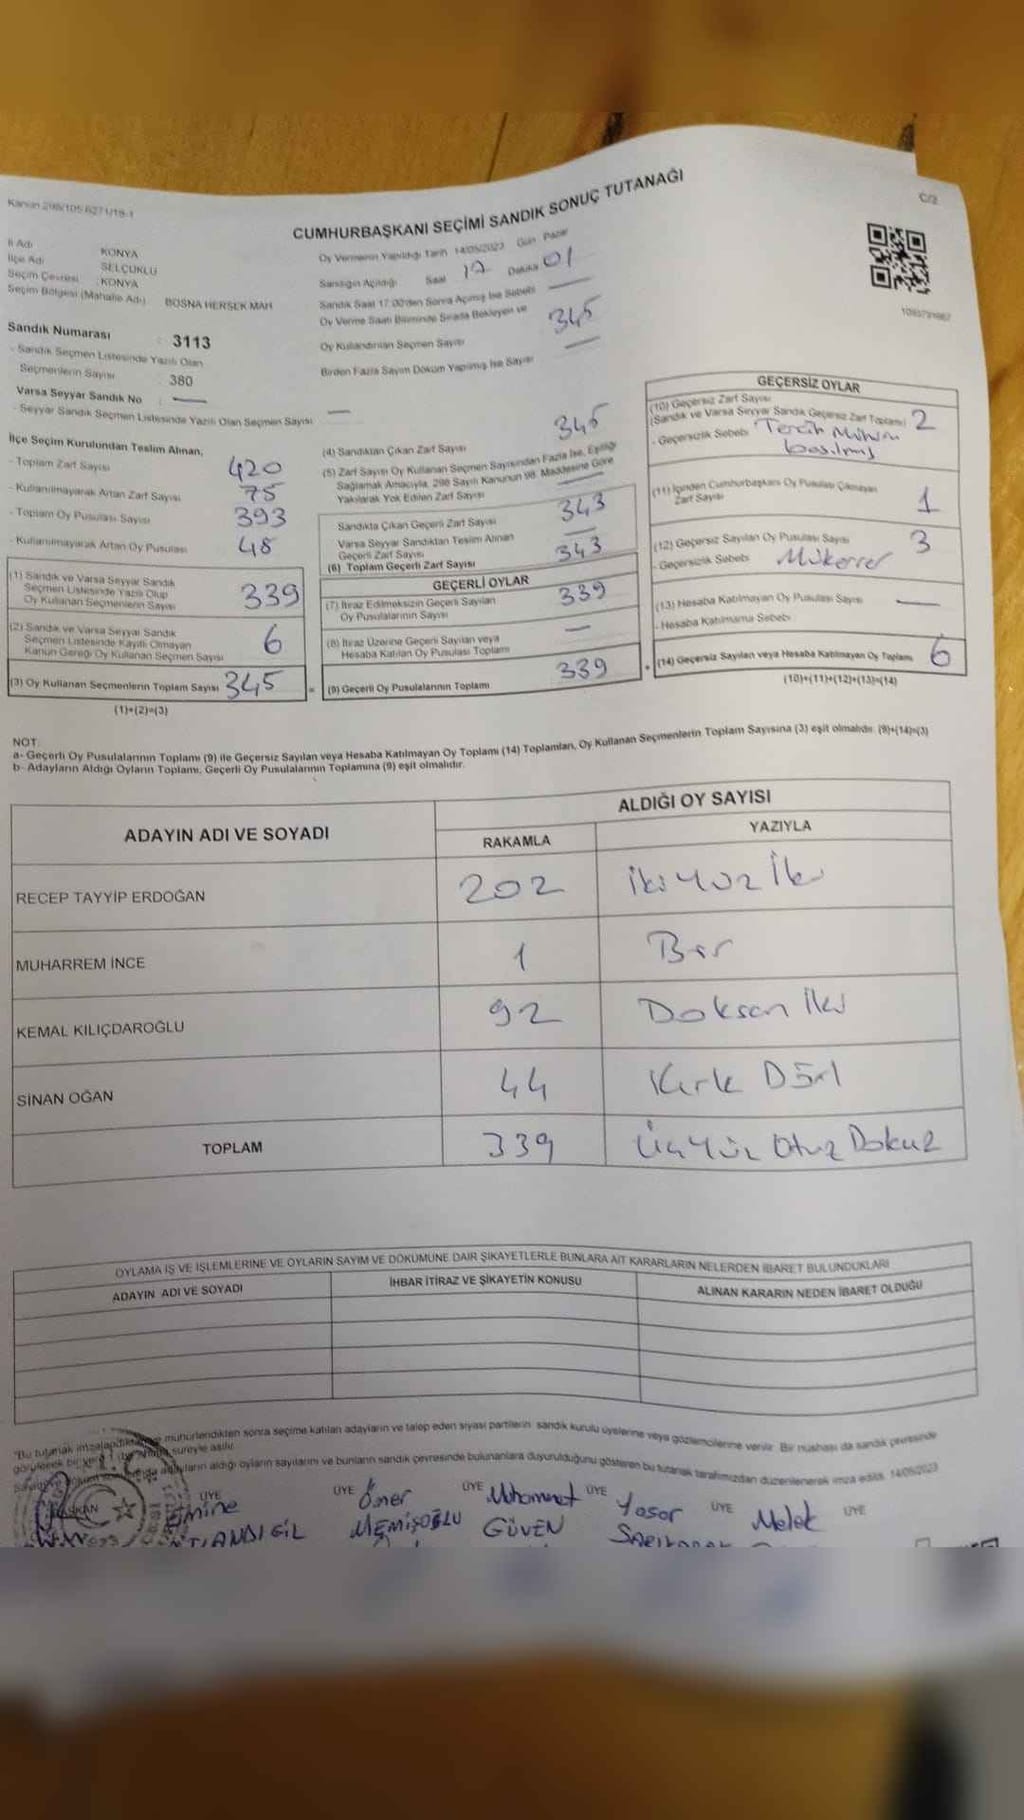 Kanun 298/105 6271/19-1
C/2
CUMHURBAŞKANI SEÇİMİ SANDIK SONUÇ TUTANAĞI
İl Adı KONYA
İlçe Adı SELÇUKLU
Seçim Çevresi : KONYA
Seçim Bölgesi (Mahalle Adı) BOSNA HERSEK MAH
Sandık Numarası : 3113
- Sandık Seçmen Listesinde Yazılı Olan
Seçmenlerin Sayısı : 380
Varsa Seyyar Sandık No : —
- Seyyar Sandık Seçmen Listesinde Yazılı Olan Seçmen Sayısı —
Oy Vermenin Yapıldığı Tarih 14/05/2023 Gün Pazar
Sandığın Açıldığı Saat 17 Dakika 01
Sandık Saat 17:00'den Sonra Açılmış İse Sebebi —
Oy Verme Saati Bitiminde Sırada Bekleyen ve
Oy Kullandırılan Seçmen Sayısı 345
Birden Fazla Sayım Döküm Yapılmış İse Sayısı —
İlçe Seçim Kurulundan Teslim Alınan;
- Toplam Zarf Sayısı 420
- Kullanılmayarak Artan Zarf Sayısı 75
- Toplam Oy Pusulası Sayısı 393
- Kullanılmayarak Artan Oy Pusulası 48
(1) Sandık ve Varsa Seyyar Sandık
Seçmen Listesinde Yazılı Olup
Oy Kullanan Seçmenlerin Sayısı 339
(2) Sandık ve Varsa Seyyar Sandık
Seçmen Listesinde Kayıtlı Olmayan
Kanun Gereği Oy Kullanan Seçmen Sayısı 6
(3) Oy Kullanan Seçmenlerin Toplam Sayısı 345
(1)+(2)=(3)
(4) Sandıktan Çıkan Zarf Sayısı 345
(5) Zarf Sayısı Oy Kullanan Seçmen Sayısından Fazla İse, Eşitliği
Sağlamak Amacıyla, 298 Sayılı Kanunun 98. Maddesine Göre
Yakılarak Yok Edilen Zarf Sayısı —
Sandıkta Çıkan Geçerli Zarf Sayısı 343
Varsa Seyyar Sandıktan Teslim Alınan
Geçerli Zarf Sayısı —
(6) Toplam Geçerli Zarf Sayısı 343
GEÇERLİ OYLAR
(7) İtiraz Edilmeksizin Geçerli Sayılan
Oy Pusulalarının Sayısı 339
(8) İtiraz Üzerine Geçerli Sayılan veya
Hesaba Katılan Oy Pusulası Toplamı —
= (9) Geçerli Oy Pusulalarının Toplamı 339
GEÇERSİZ OYLAR
(10) Geçersiz Zarf Sayısı
(Sandık ve Varsa Seyyar Sandık Geçersiz Zarf Toplamı) 2
- Geçersizlik Sebebi Tercih Mührü
basılmış
(11) İçinden Cumhurbaşkanı Oy Pusulası Çıkmayan
Zarf Sayısı 1
(12) Geçersiz Sayılan Oy Pusulası Sayısı 3
- Geçersizlik Sebebi Mükerrer
(13) Hesaba Katılmayan Oy Pusulası Sayısı —
- Hesaba Katılmama Sebebi
+ (14) Geçersiz Sayılan veya Hesaba Katılmayan Oy Toplamı 6
(10)+(11)+(12)+(13)=(14)
NOT:
a- Geçerli Oy Pusulalarının Toplamı (9) ile Geçersiz Sayılan veya Hesaba Katılmayan Oy Toplamı (14) Toplamları, Oy Kullanan Seçmenlerin Toplam Sayısına (3) eşit olmalıdır. (9)+(14)=(3)
b- Adayların Aldığı Oyların Toplamı, Geçerli Oy Pusulalarının Toplamına (9) eşit olmalıdır.
ADAYIN ADI VE SOYADI
ALDIĞI OY SAYISI
RAKAMLA YAZIYLA
RECEP TAYYİP ERDOĞAN 202 İkiyüz İki
MUHARREM İNCE 1 Bir
KEMAL KILIÇDAROĞLU 92 Doksan İki
SİNAN OĞAN 44 Kırk Dört
TOPLAM 339 Üçyüz Otuz Dokuz
OYLAMA İŞ VE İŞLEMLERİNE VE OYLARIN SAYIM VE DÖKÜMÜNE DAİR ŞİKAYETLERLE BUNLARA AİT KARARLARIN NELERDEN İBARET BULUNDUKLARI
ADAYIN ADI VE SOYADI İHBAR İTİRAZ VE ŞİKAYETİN KONUSU ALINAN KARARIN NEDEN İBARET OLDUĞU
"Bu tutanak mühürlendikten sonra seçime katılan adayların ve talep eden siyasi partilerin sandık kurulu üyelerine veya gözlemcilerine verilir. Bir nüshası da sandık çevresinde
süreyle asılır.
adayların aldığı oyların sayılarını ve bunların sandık çevresinde bulunanlara duyurulduğunu gösteren bu tutanak tarafımızdan düzenlenerek imza edildi. 14/05/2023
ÜYE ÜYE ÜYE ÜYE ÜYE ÜYE
Emine Ömer Muhammet Yaşar Melek
MEMİŞOĞLU GÜVEN